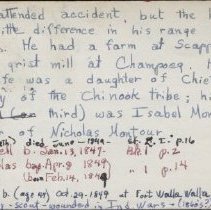 attended accident, but the
little difference in his range
. He had a farm at Scapp
grist mill at Champoeg.
fe was a daughter of Chie
y of the Chinook tribe; h
third) was Isabel Mon
of Nicholas Montour
died June - 1849 - St. L. I. p.16
b. Jan. 13, 1849. p. 2
las bap. Apr. 9 1849 " p. 14
(born Feb. 14, 1849
b. (age 49) Oct. 29. 1849 at Fort Walla Walla
scout - wounded in Ind. Wars -